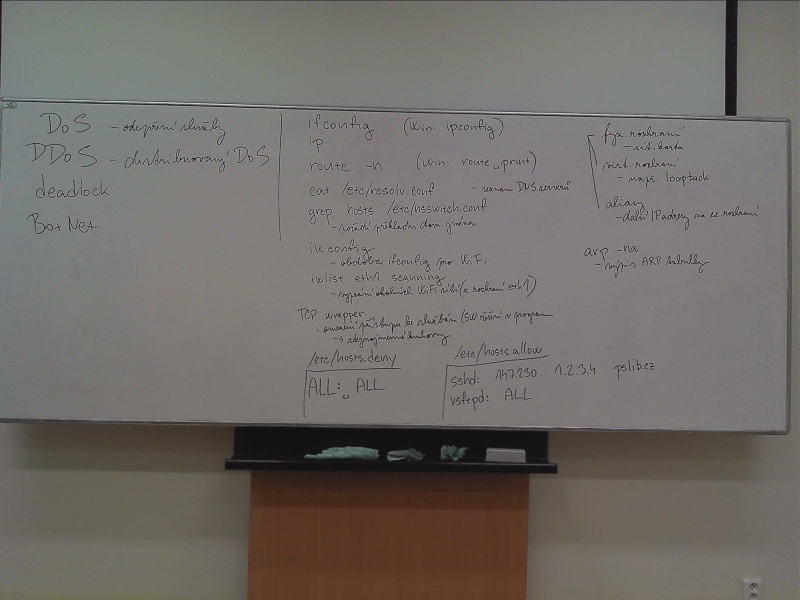 DoS - odepření služby
DDoS - distribuovaný DoS
deadlock
BotNet
ifconfig (win: ipconfig)
ip
route -n (win: route␣print)
cat /etc/resolv.conf - seznam DNS serverů
grep hosts /etc/nsswitch.conf
- pořadí překladu dom. jména
iwconfig
- obdoba ifconfig pro WiFi
iwlist eth1 scanning
- vypsání okolních WiFi sítí (z rozhraní eth1)
TCP wrapper
- omezení přístupu ke službám (SW řešení v programu
→ stejnojmenné knihovny
/etc/hosts.deny
ALL:␣ALL
/etc/hosts.allow
sshd: 147.230 1.2.3.4 pslib.cz
vsftpd: ALL
fyz. rozhraní
- síť. karta
virt. rozhraní
- např. loopback
aliasy
- další IP adresy na rozhraní
arp -na
- výpis ARP tabulky